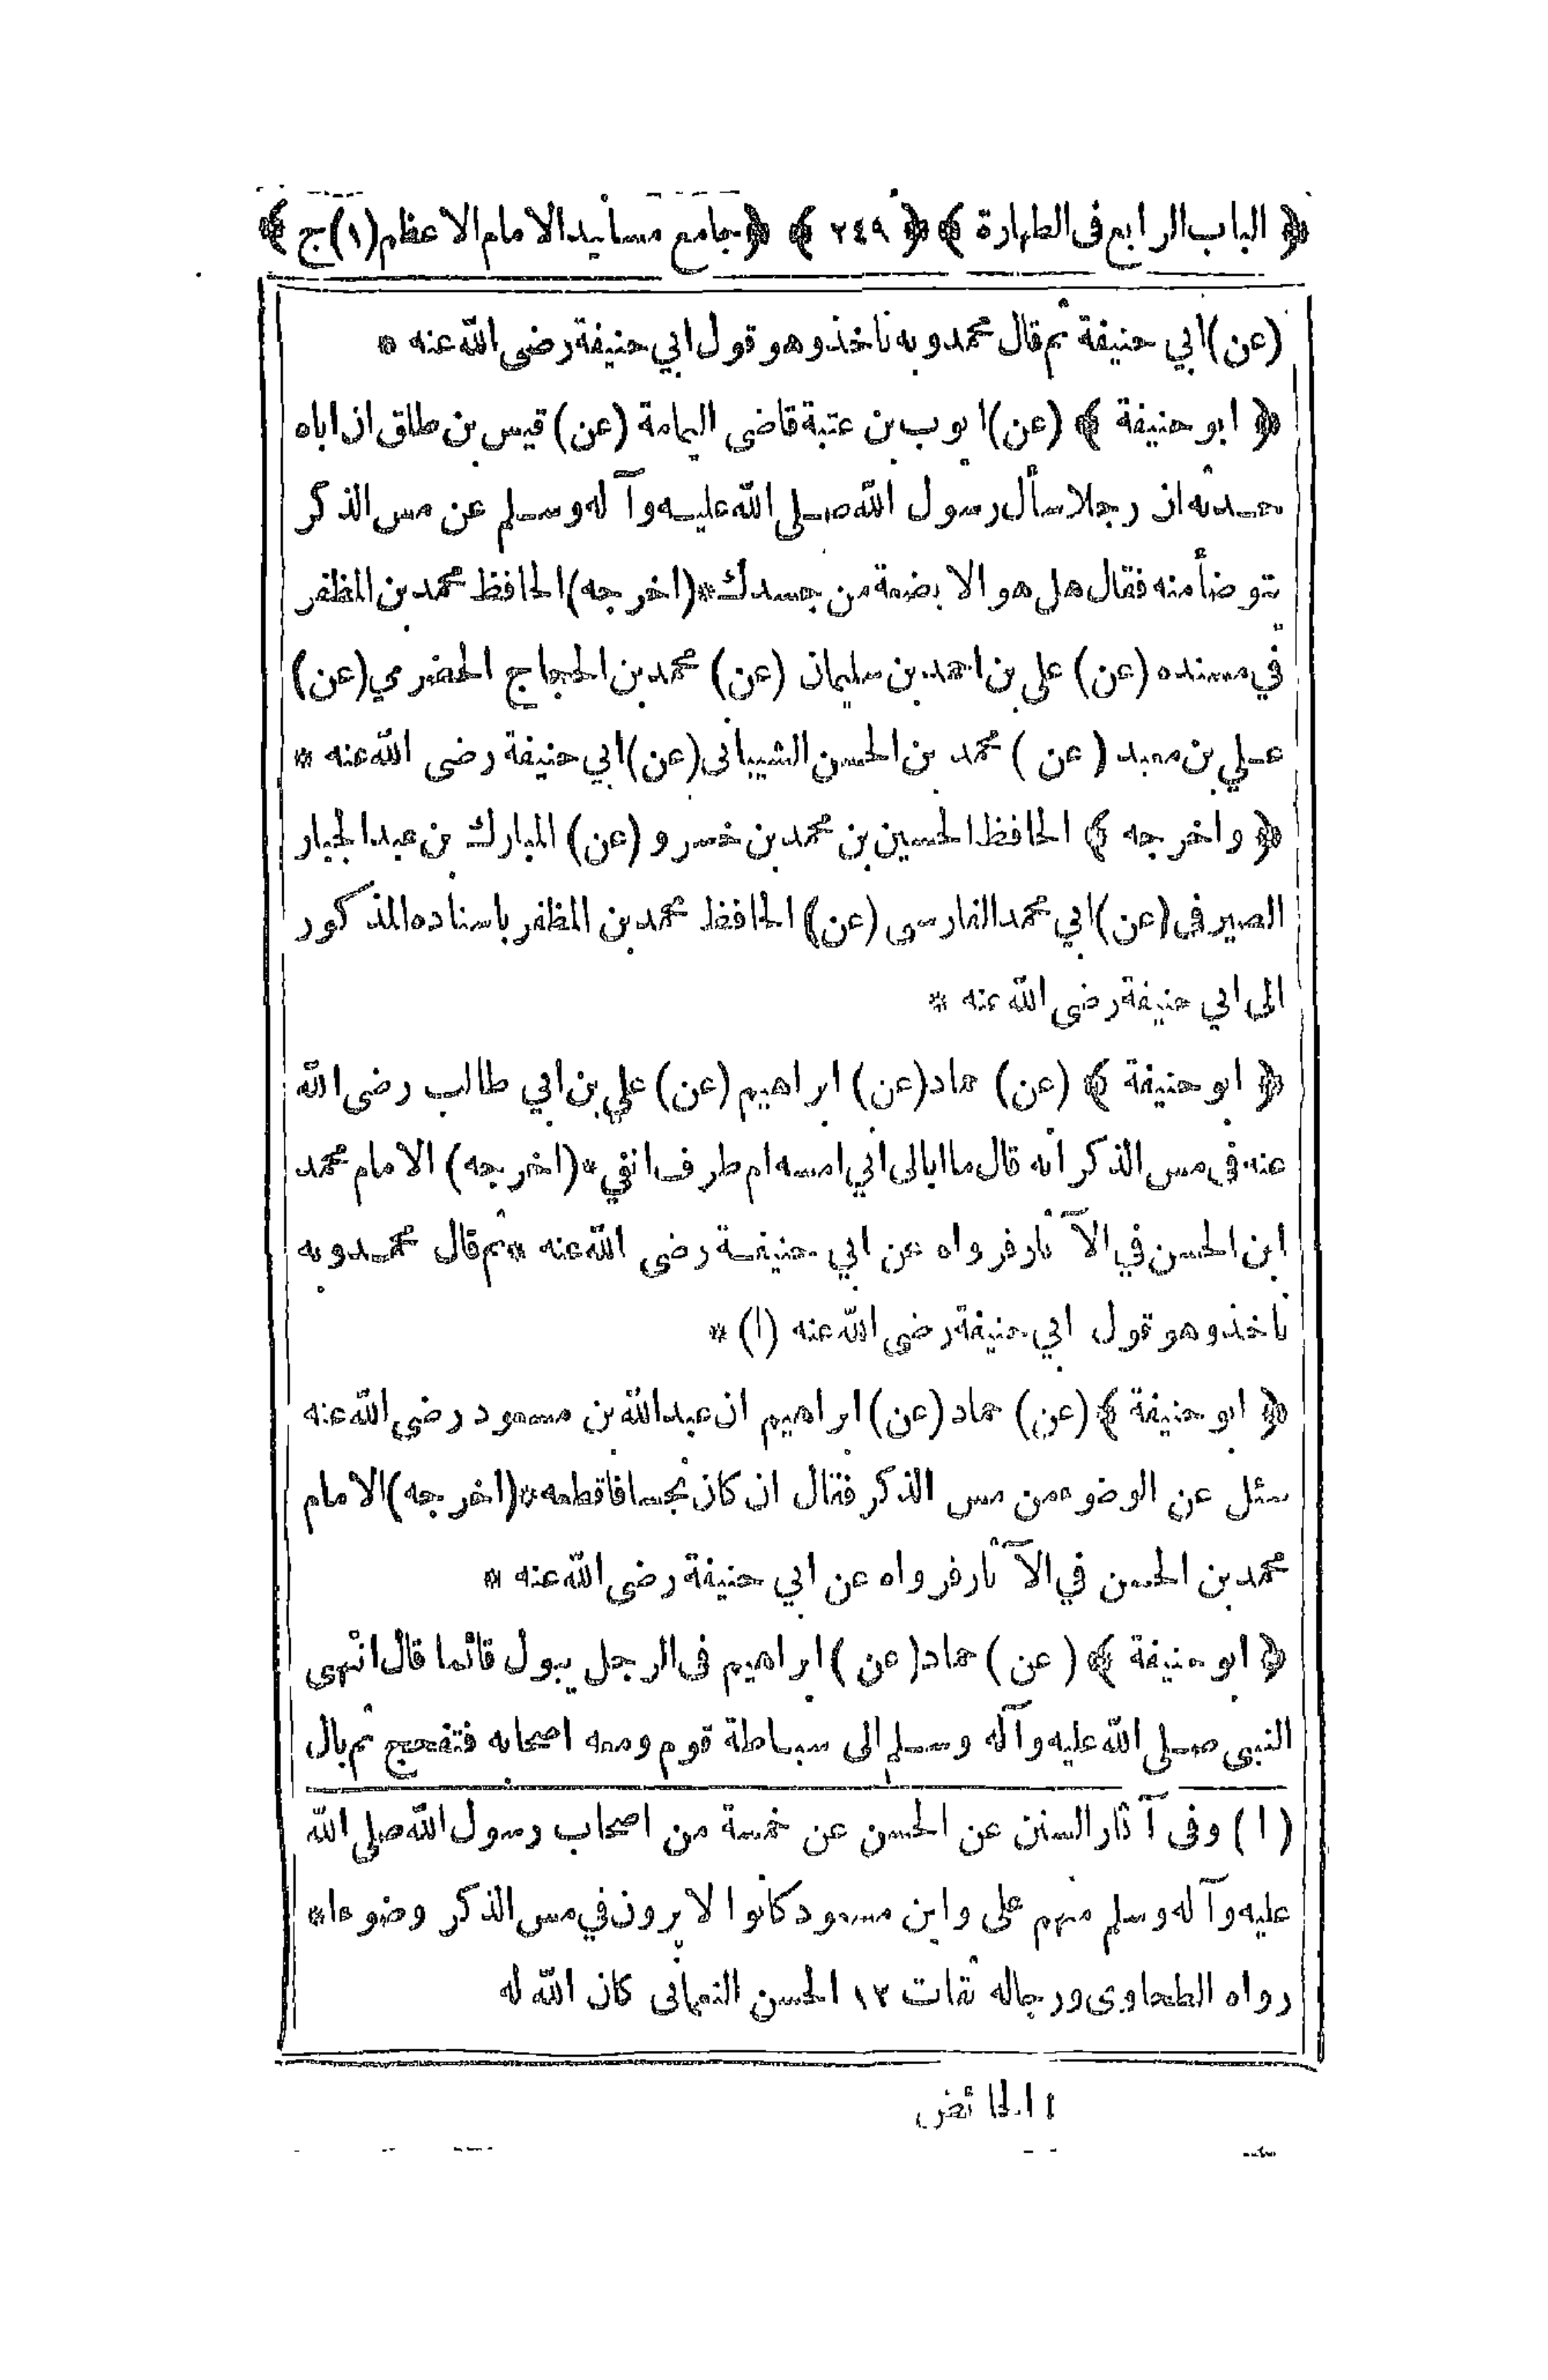 ﴿ الباب الرابع فى الطهارة ﴾ ﴿ ٢٤٩ ﴾ ﴿ جامع مسانيد الامام الاعظم (١) ج ﴾
(عن) ابي حنيفة ثم قال محمد وبه ناخذ وهو قول ابي حنيفة رضى الله عنه *
﴿ ابو حنيفة ﴾ (عن) ايوب بن عتبة قاضى اليمامة (عن) قيس بن طلق ان اباه
حدثه ان رجلا سأل رسول الله صلى الله عليه وآله وسلم عن مس الذكر
يتوضأ منه فقال هل هو الا بضعة من جسدك * (اخرجه) الحافظ محمد بن المظفر
في مسنده (عن) على بن احمد بن سليمان (عن) محمد بن الحجاج الحضرمي (عن)
علي بن معبد (عن) محمد بن الحسن الشيبانى (عن) ابي حنيفة رضى الله عنه *
﴿ واخرجه ﴾ الحافظ الحسين بن محمد بن خسرو (عن) المبارك بن عبد الجبار
الصيرفى (عن) ابي محمد الفارسى (عن) الحافظ محمد بن المظفر باسناده المذكور
الى ابي حنيفة رضى الله عنه *
﴿ ابو حنيفة ﴾ (عن) حماد (عن) ابراهيم (عن) علي بن ابي طالب رضى الله
عنه فى مس الذكر انه قال ما ابالى اني امسه ام طرف انفي * (اخرجه) الامام محمد
ابن الحسن في الآثار فرواه عن ابي حنيفة رضى الله عنه * ثم قال محمد وبه
ناخذ وهو قول ابي حنيفة رضى الله عنه (١) *
﴿ ابو حنيفة ﴾ (عن) حماد (عن) ابراهيم ان عبد الله بن مسعود رضى الله عنه
سئل عن الوضوء من مس الذكر فقال ان كان نجسا فاقطعه * (اخرجه) الامام
محمد بن الحسن في الآثار فرواه عن ابي حنيفة رضى الله عنه *
﴿ ابو حنيفة ﴾ (عن) حماد (عن) ابراهيم فى الرجل يبول قائما قال انتهى
النبى صلى الله عليه وآله وسلم الى سباطة قوم ومعه اصحابه فتفحج ثم بال
(١) وفى آثار السنن عن الحسن عن خمسة من اصحاب رسول الله صلى الله
عليه وآله وسلم منهم على وابن مسعود كانوا لا يرون في مس الذكر وضوءا *
رواه الطحاوى ورجاله ثقات ١٢ الحسن النعمانى كان الله له
الحائض